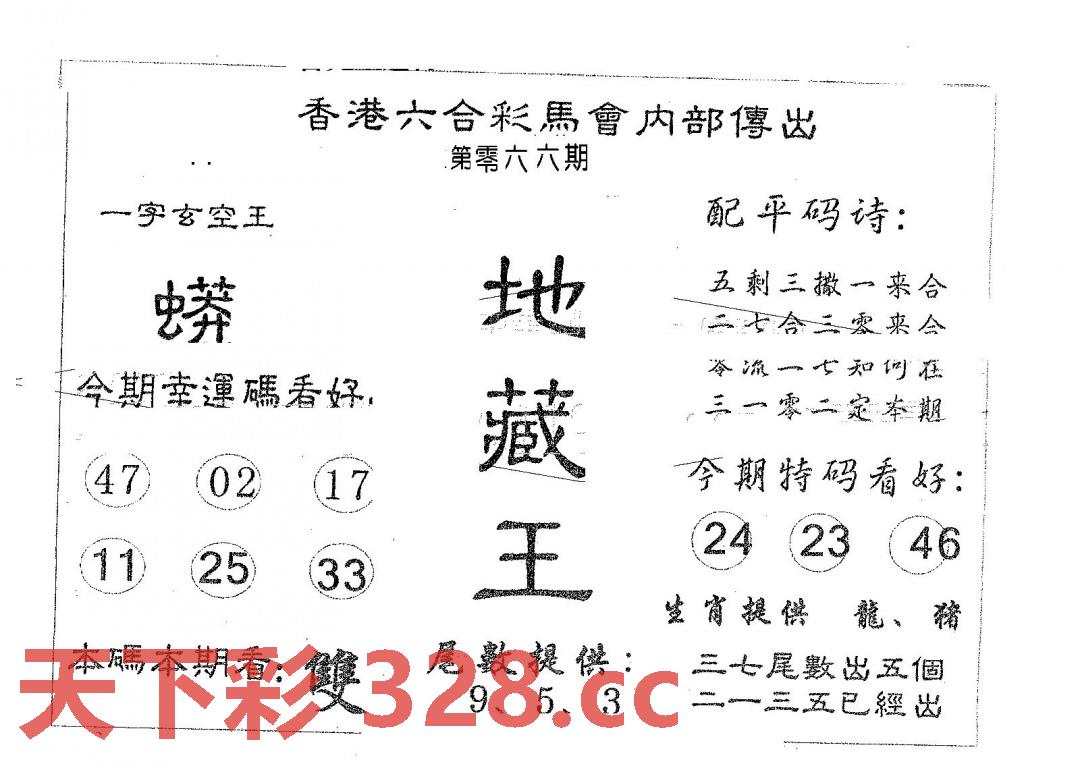 香港六合彩馬會内部傳出
第零六六期
一字玄空王
蟒
今期幸運碼看好.
47 02 17
11 25 33
本碼本期看:雙
地
藏
王
尾數提供:
9、5、3
配平码诗:
五剩三撒一来合
二七合三零来合
零流一七知何在
三一零二定本期
今期特码看好:
24 23 46
生肖提供 龍、豬
三七尾數出五個
二一三五已經出
天下彩328.cc